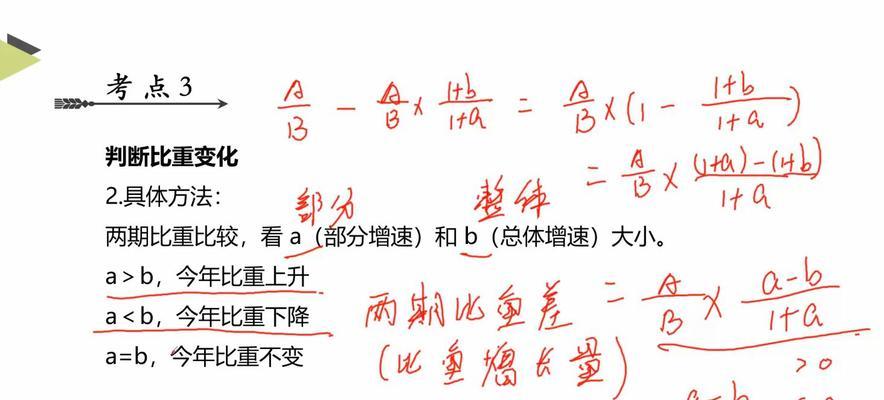 考点3
A/B - A/B × (1+b)/(1+a) = A/B × (1 - (1+b)/(1+a))
判断比重变化
= A/B × ((1+a)-(1+b))/(1+a)
2.具体方法：
部分 整体
两期比重比较，看 a（部分增速）和 b（总体增速）大小。
a>b，今年比重上升
a<b，今年比重下降
两期比重差 = A/B × (a-b)/(1+a)
a=b，今年比重不变
(比重增长量) >0
a-b